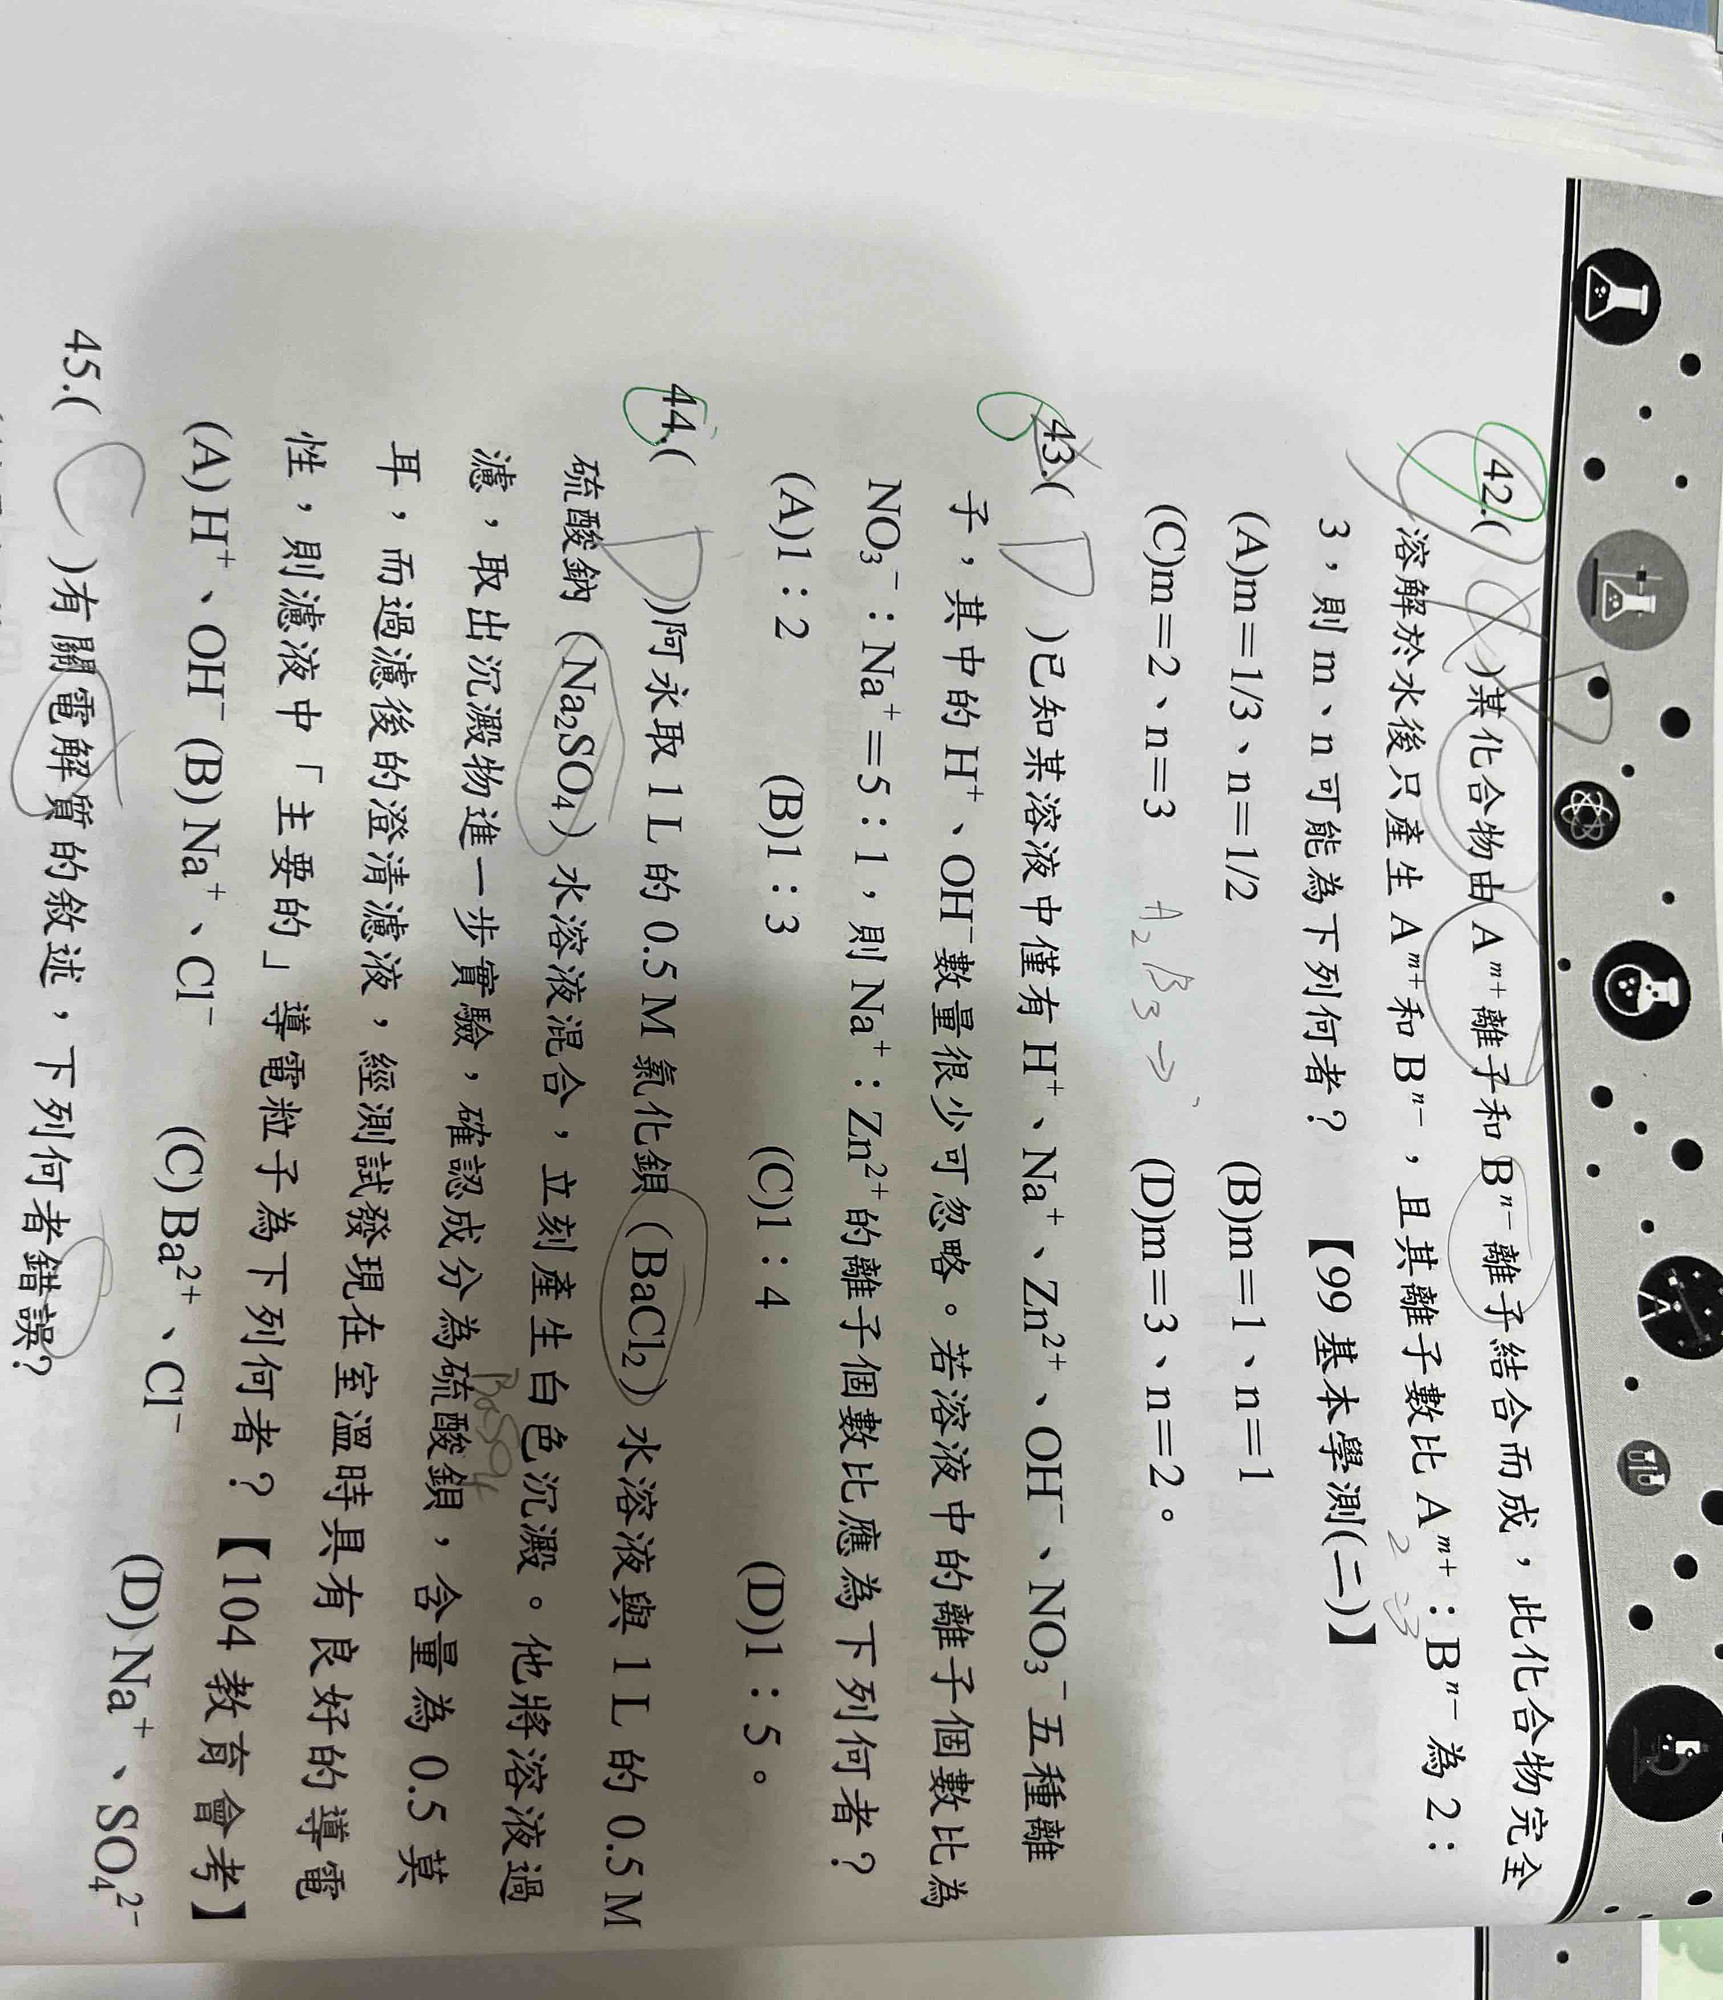 42.( D )某化合物由 Aᵐ⁺離子和 Bⁿ⁻離子結合而成，此化合物完全
溶解於水後只產生 Aᵐ⁺和 Bⁿ⁻，且其離子數比 Aᵐ⁺：Bⁿ⁻為 2：
2 : 3
3，則 m、n 可能為下列何者？ 【99 基本學測(二)】
(A)m＝1/3、n＝1/2 (B)m＝1、n＝1
(C)m＝2、n＝3 (D)m＝3、n＝2。
A₂B₃ →
43.( D )已知某溶液中僅有 H⁺、Na⁺、Zn²⁺、OH⁻、NO₃⁻五種離
子，其中的 H⁺、OH⁻數量很少可忽略。若溶液中的離子個數比為
NO₃⁻：Na⁺＝5：1，則 Na⁺：Zn²⁺的離子個數比應為下列何者？
(A)1：2 (B)1：3 (C)1：4 (D)1：5。
44.( D )阿永取 1 L 的 0.5 M 氯化鋇（BaCl₂）水溶液與 1 L 的 0.5 M
硫酸鈉（Na₂SO₄）水溶液混合，立刻產生白色沉澱。他將溶液過
BaSO4
濾，取出沉澱物進一步實驗，確認成分為硫酸鋇，含量為 0.5 莫
耳，而過濾後的澄清濾液，經測試發現在室溫時具有良好的導電
性，則濾液中「主要的」導電粒子為下列何者？【104 教育會考】
(A) H⁺、OH⁻ (B) Na⁺、Cl⁻ (C) Ba²⁺、Cl⁻ (D) Na⁺、SO₄²⁻
45.( C )有關電解質的敘述，下列何者錯誤？